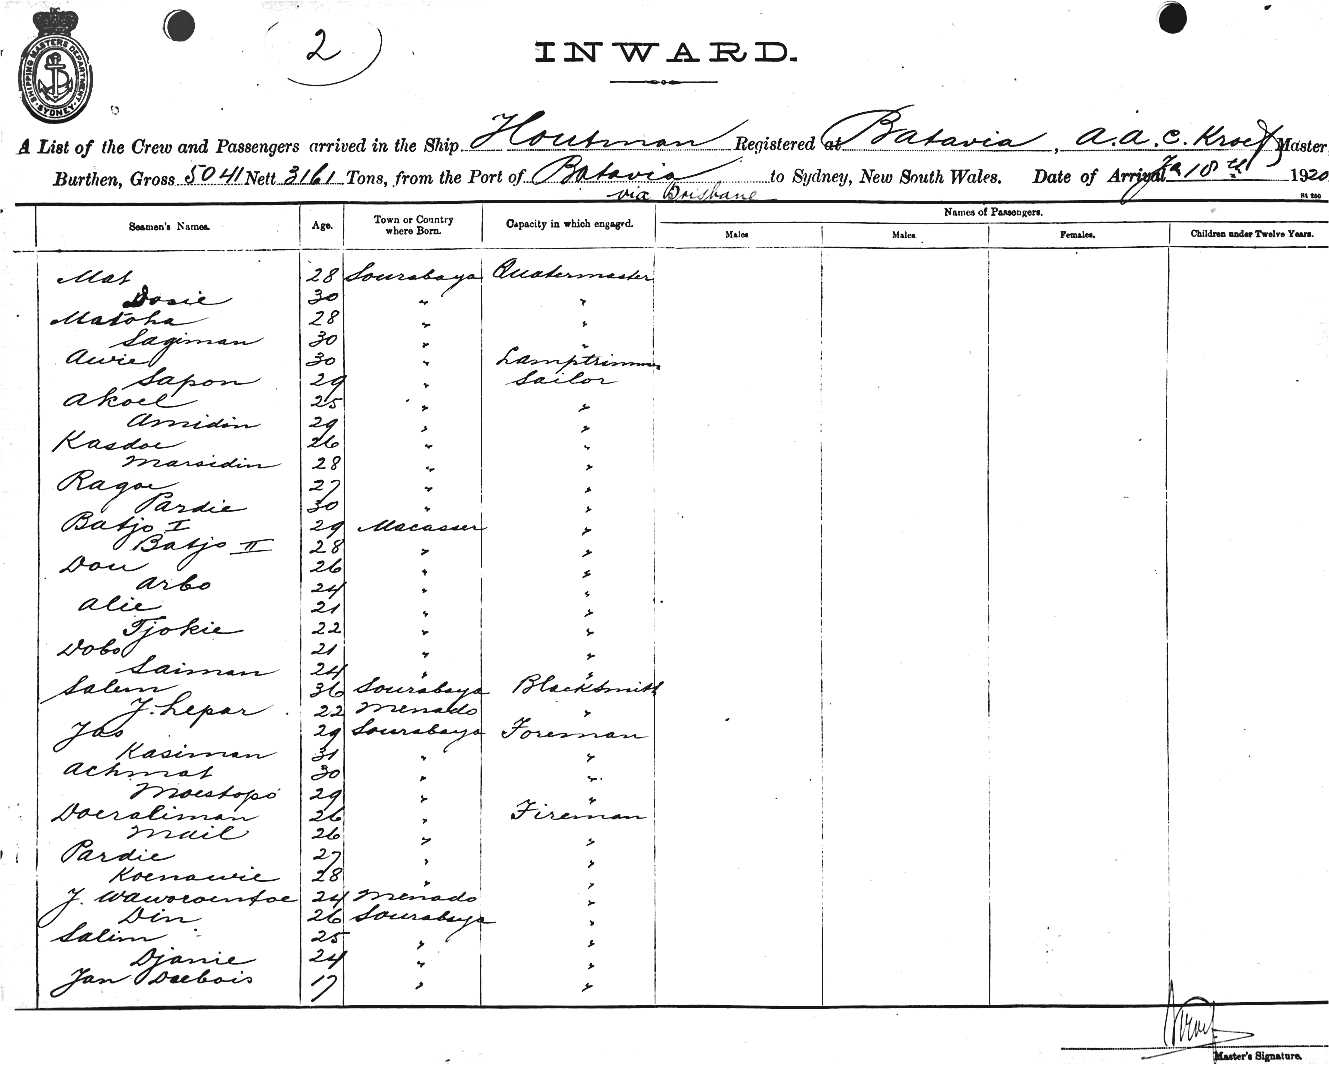 2
INWARD.
SHIPPING MASTERS DEPARTMENT SYDNEY
A List of the Crew and Passengers arrived in the Ship Houtman Registered at Batavia, A.A.C. Kroef Master
Burthen, Gross 5041 Nett 3161 Tons, from the Port of Batavia to Sydney, New South Wales. Date of Arrival 18th 1920
via Brisbane
Seamen's Names. Age. Town or Country where Born. Capacity in which engaged. Names of Passengers.
Males Males Females. Children under Twelve Years.
Mat 28 Sourabaya Quatermaster
Dosie 30 " "
Matoha 28 " "
Sagiman 30 " "
Awie 30 " Lamptrimmer
Sapon 29 " Sailor
Akoel 25 " "
Amidin 29 " "
Kasdoe 26 " "
Marsidin 28 " "
Ragoe 27 " "
Pardie 30 " "
Batjo I 29 Macasser "
Batjo II 28 " "
Dou 26 " "
Arbo 24 " "
Alie 21 " "
Tjokie 22 " "
Dobo 21 " "
Saiman 24 " "
Salem 36 Sourabaya Blacksmith
J. Lepar 22 Menado "
Jas 29 Sourabaya Foreman
Kasiman 31 " "
Achmat 30 " "
Moestopo 29 " "
Doeraliman 26 " Fireman
Mail 26 " "
Pardie 27 " "
Koenawie 28 " "
J. Waworoentoe 24 Menado "
Din 26 Sourabaya "
Salim 25 " "
Djanie 24 " "
Jan Duebois 17 " "
Master's Signature.